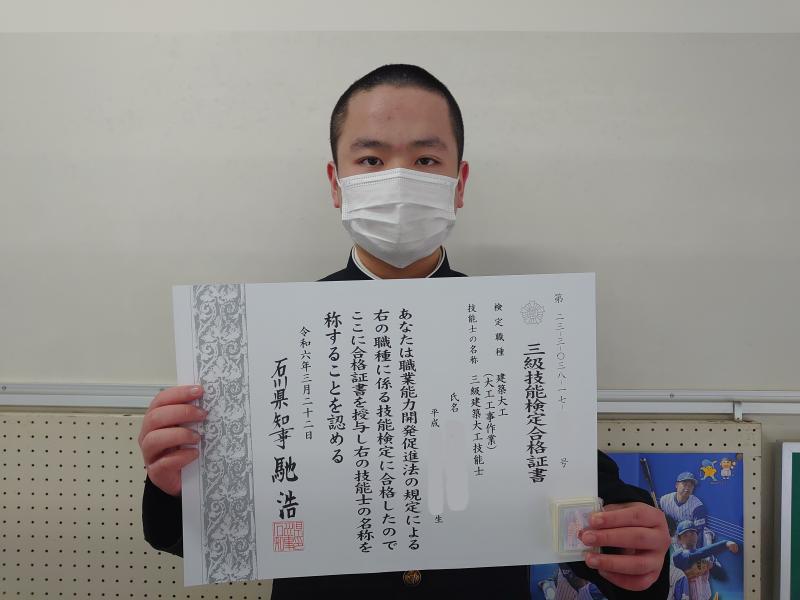 第 二三-三-〇三八-一七- 号
三級技能検定合格証書
検定職種 建築大工
(大工工事作業)
技能士の名称 三級建築大工技能士
氏名
平成 生
あなたは職業能力開発促進法の規定による
右の職種に係る技能検定に合格したので
ここに合格証書を授与し右の技能士の名称を
称することを認める
令和六年三月二十二日
石川県知事 馳浩